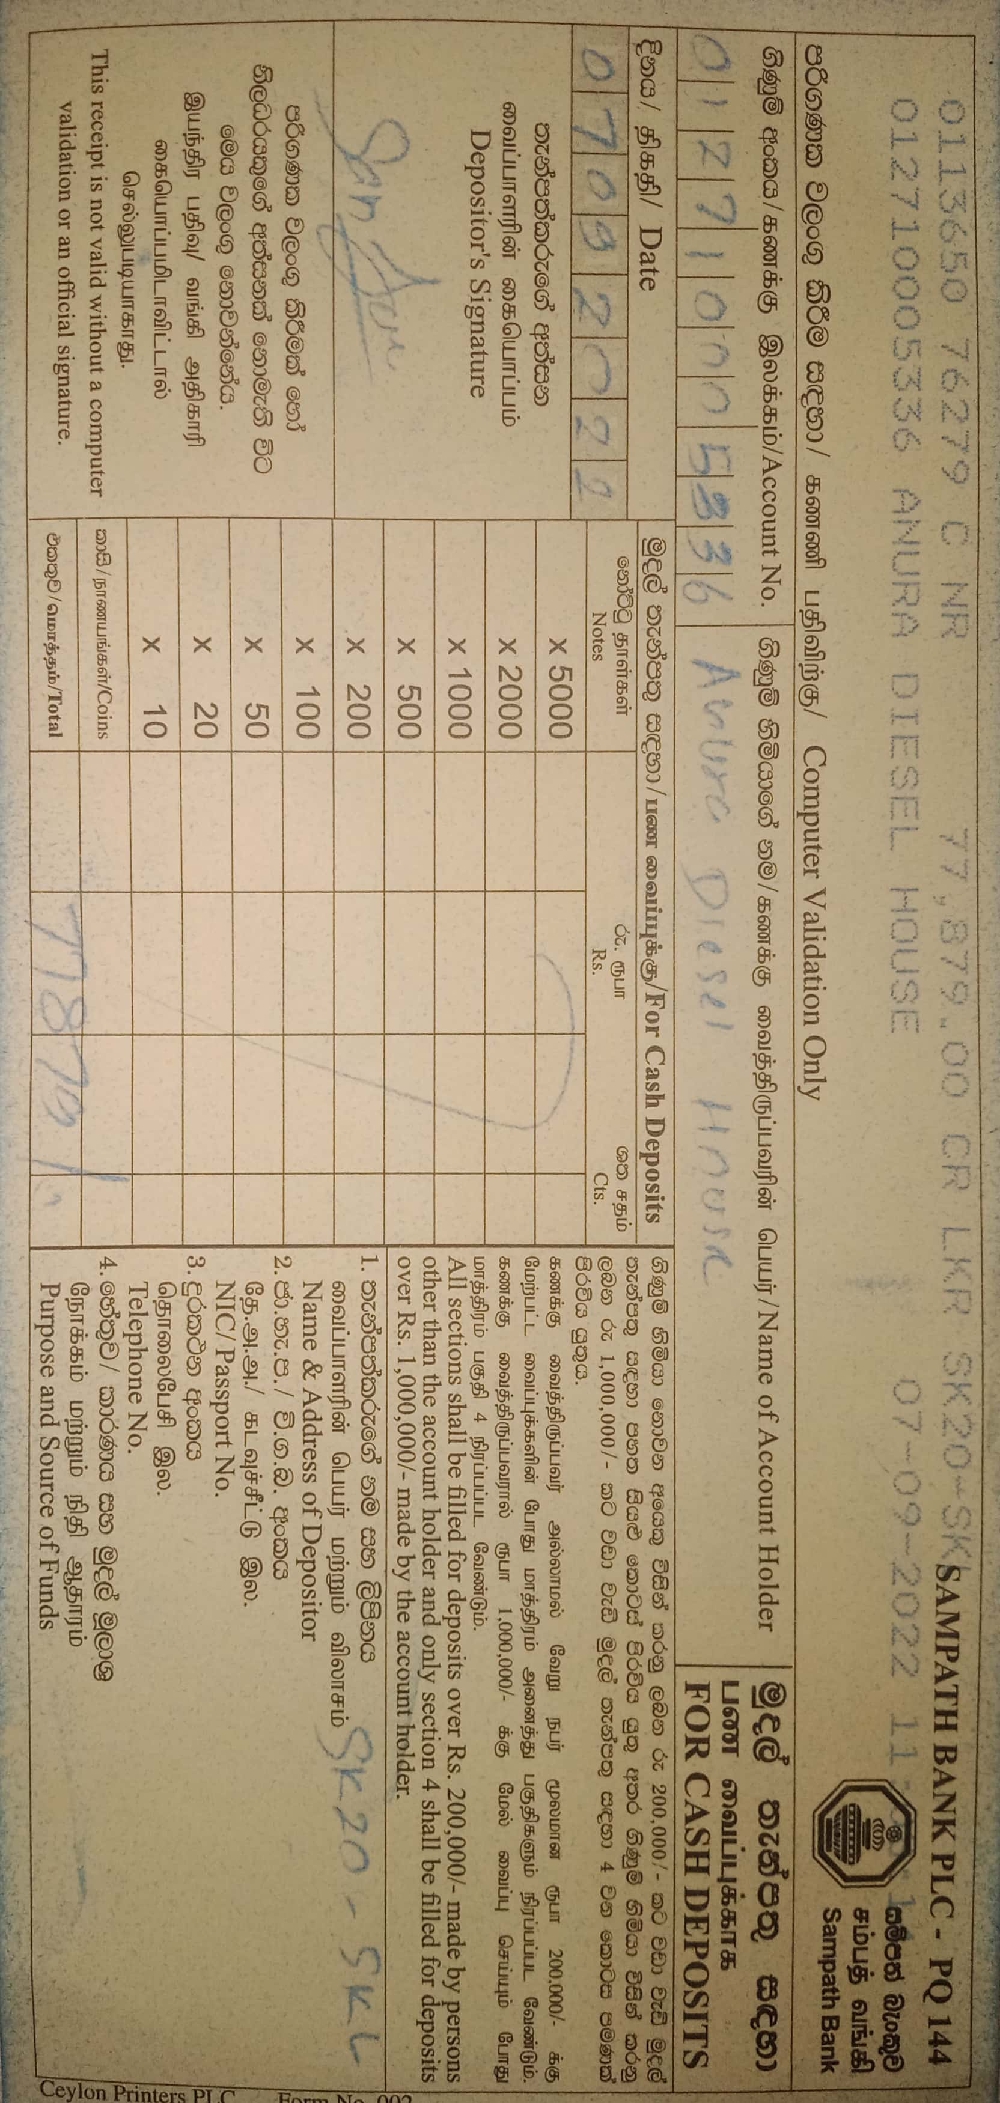 0113650 76279 C NR 77,879.00 CR LKR SK20-SK
SAMPATH BANK PLC - PQ 144
012710005336 ANURA DIESEL HOUSE 07-09-2022 11
සම්පත් බැංකුව
சம்பத் வங்கி
Sampath Bank
පරිගණක වලංගු කිරීම සඳහා / கணணி பதிவிற்கு / Computer Validation Only
ගිණුම් අංකය/கணக்கு இலக்கம்/Account No.
ගිණුම් හිමියාගේ නම/கணக்கு வைத்திருப்பவரின் பெயர்/Name of Account Holder
012710005336 Anura Diesel House
මුදල් තැන්පතු සඳහා
பண வைப்புக்காக
FOR CASH DEPOSITS
දිනය/ திகதி/ Date
07092022
තැන්පත්කරුගේ අත්සන
வைப்பாளரின் கையொப்பம்
Depositor's Signature
පරිගණක වලංගු කිරීමක් හෝ
නිලධාරියකුගේ අත්සනක් නොමැති විට
මෙය වලංගු නොවන්නේය.
இயந்திர பதிவு/ வங்கி அதிகாரி
கையொப்பமிடாவிட்டால்
செல்லுபடியாகாது.
This receipt is not valid without a computer
validation or an official signature.
මුදල් තැන්පතු සඳහා/பண வைப்புக்கு/For Cash Deposits
නෝට්ටු தாள்கள்
Notes
රු. ரூபா
Rs.
ශත சதம்
Cts.
X 5000
X 2000
X 1000
X 500
X 200
X 100
X 50
X 20
X 10
කාසි/நாணயங்கள்/Coins
එකතුව/மொத்தம்/Total 77879/
ගිණුම් හිමියා නොවන අයෙකු විසින් කරනු ලබන රු 200,000/- කට වඩා වැඩි මුදල්
තැන්පතු සඳහා පහත සියළු කොටස් පිරවිය යුතු අතර ගිණුම් හිමියා විසින් කරනු
ලබන රු 1,000,000/- කට වඩා වැඩි මුදල් තැන්පතු සඳහා 4 වන කොටස පමණක්
පිරවිය යුතුය.
கணக்கு வைத்திருப்பவர் அல்லாமல் வேறு நபர் மூலமான ரூபா 200,000/- க்கு
மேற்பட்ட வைப்புக்களின் போது மாத்திரம் அனைத்து பகுதிகளும் நிரப்பப்பட வேண்டும்.
கணக்கு வைத்திருப்பவரால் ரூபா 1,000,000/- க்கு மேல் வைப்பு செய்யும் போது
மாத்திரம் பகுதி 4 நிரப்பப்பட வேண்டும்.
All sections shall be filled for deposits over Rs. 200,000/- made by persons
other than the account holder and only section 4 shall be filled for deposits
over Rs. 1,000,000/- made by the account holder.
1. තැන්පත්කරුගේ නම සහ ලිපිනය
வைப்பாளரின் பெயர் மற்றும் விலாசம்
Name & Address of Depositor
SK20 - SKL
2. ජා.හැ.ප./ වි.ග.බ. අංකය
தே.அ.அ./ கடவுச்சீட்டு இல.
NIC/ Passport No.
3. දුරකථන අංකය
தொலைபேசி இல.
Telephone No.
4. හේතුව/ කාරණය සහ මුදල් මූලාශ්‍ර
நோக்கம் மற்றும் நிதி ஆதாரம்
Purpose and Source of Funds
Ceylon Printers PLC Form No. 002